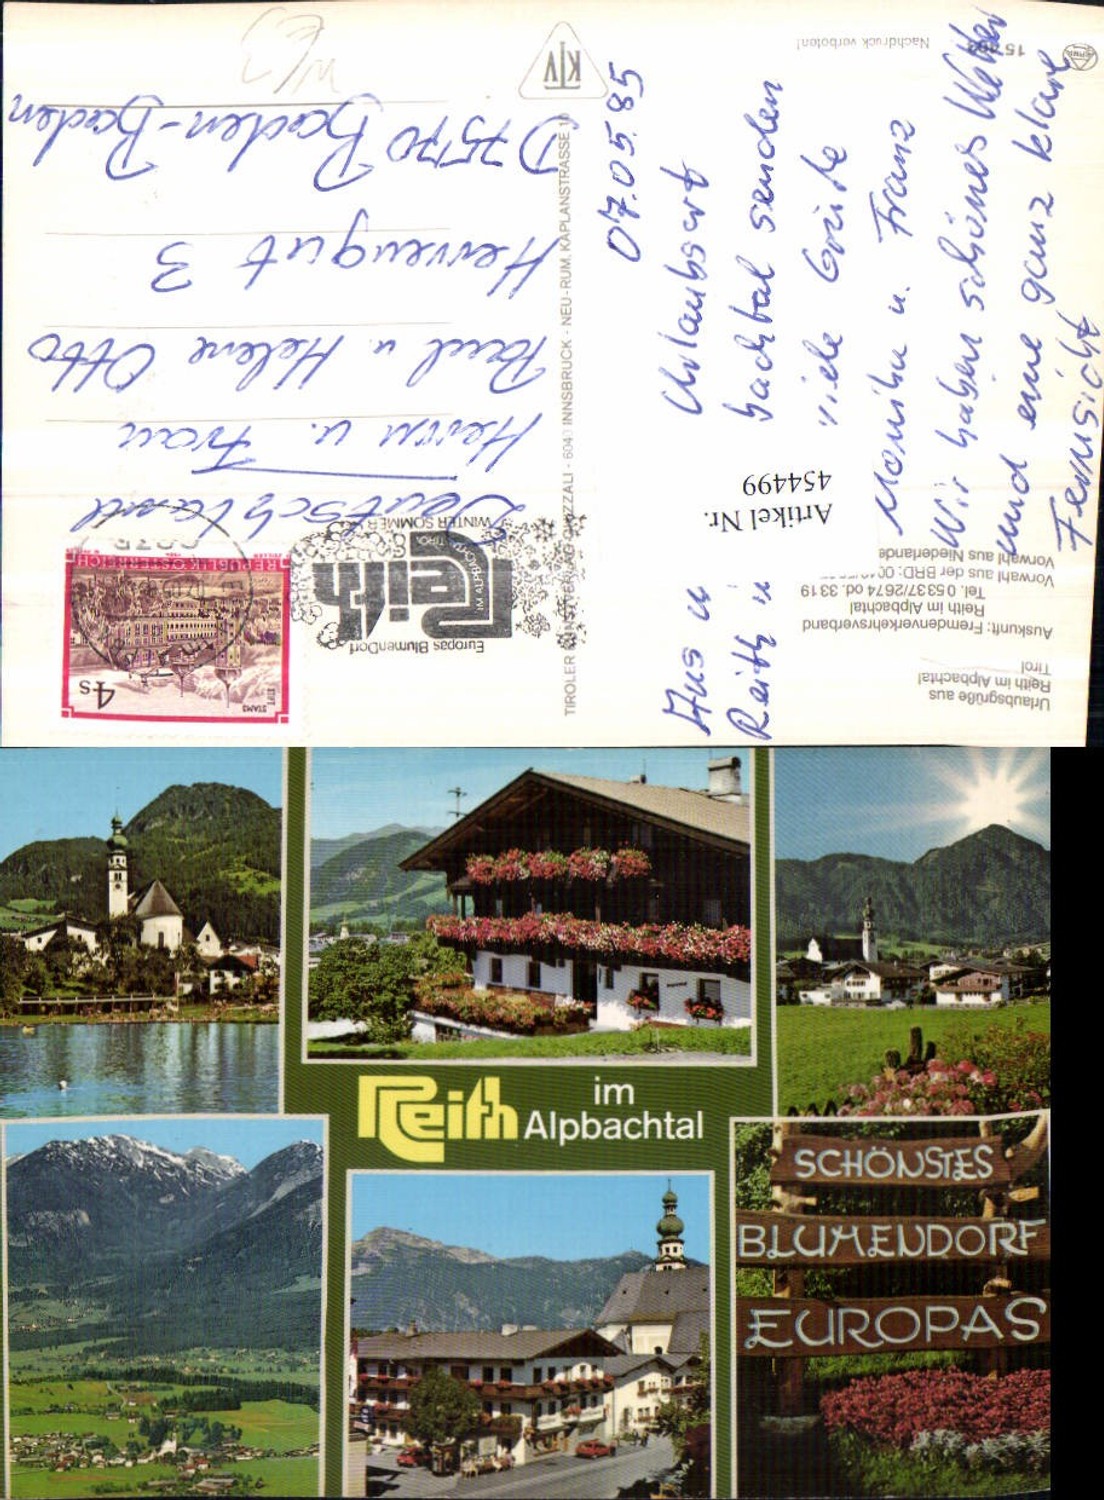 Urlaubsgrüße aus
Reith im Alpbachtal
Tirol
Auskunft: Fremdenverkehrsverband
Reith im Alpbachtal
Tel. 05337/2674 od. 3319
Vorwahl aus der BRD:
Vorwahl aus Niederlande
Artikel Nr.
454499
Nachdruck verboten!
07.05.85
Aus u Urlaubsort
Reith i bachtal senden
viele Grüße
Monika u. Franz
Wir haben schönes Wetter
und eine ganz klare
Fernsicht
TIROLER KUNSTVERLAG CHIZZALI - 6040 INNSBRUCK - NEU-RUM, KAPLANSTRASSE 10
KTV
Europas BlumenDorf
Reith
IM ALPBACHTAL TIROL
WINTER SOMMER
STIFT STAMS
4s
REPUBLIK ÖSTERREICH
Deutschland
Herrn u. Frau
Paul u. Helene Otto
Herrengut 3
D 7570 Baden-Baden
Reith im
Alpbachtal
SCHÖNSTES
BLUMENDORF
EUROPAS